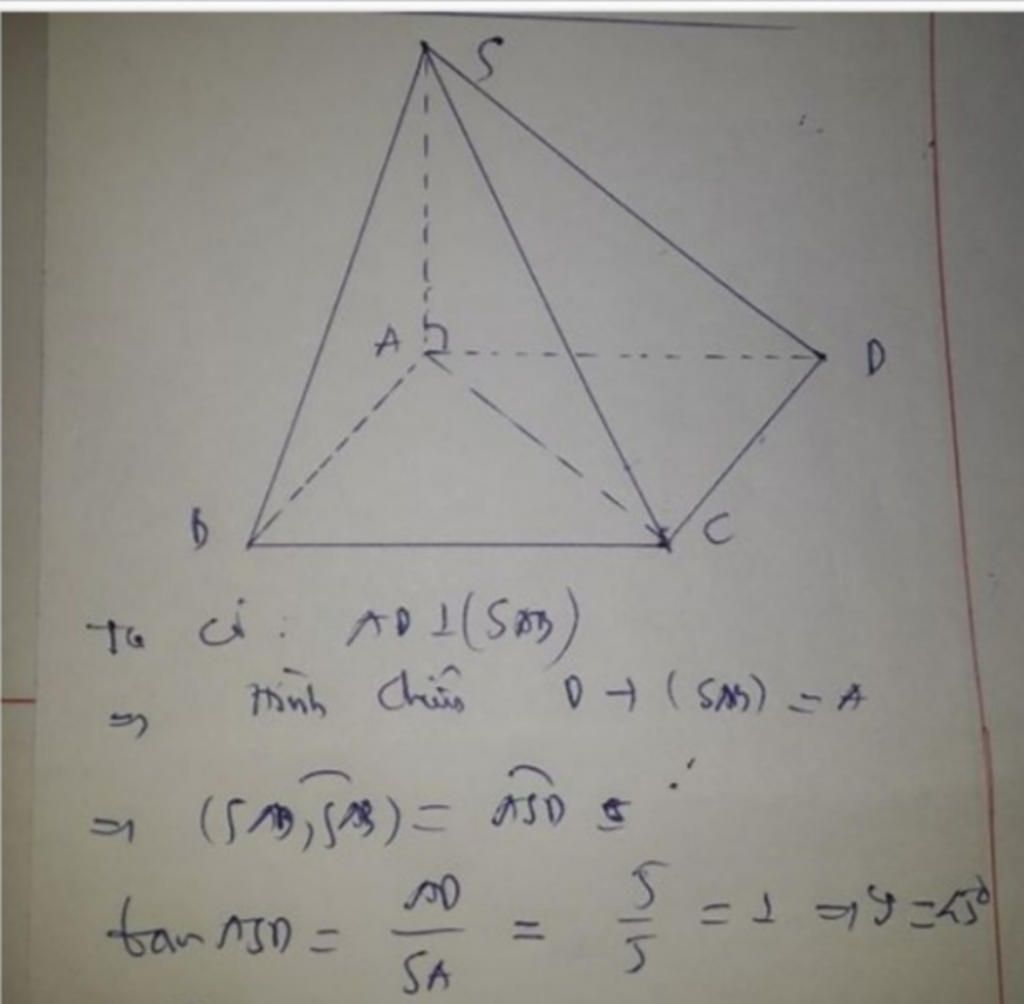 S
A
D
B
C
Ta có: AD ⊥ (SAB)
⇒ Hình chiếu D → (SAB) = A
⇒ (SAB, SAB) = ASD
tan ASD = AD/SA = 5/5 = 1 ⇒ φ = 45°